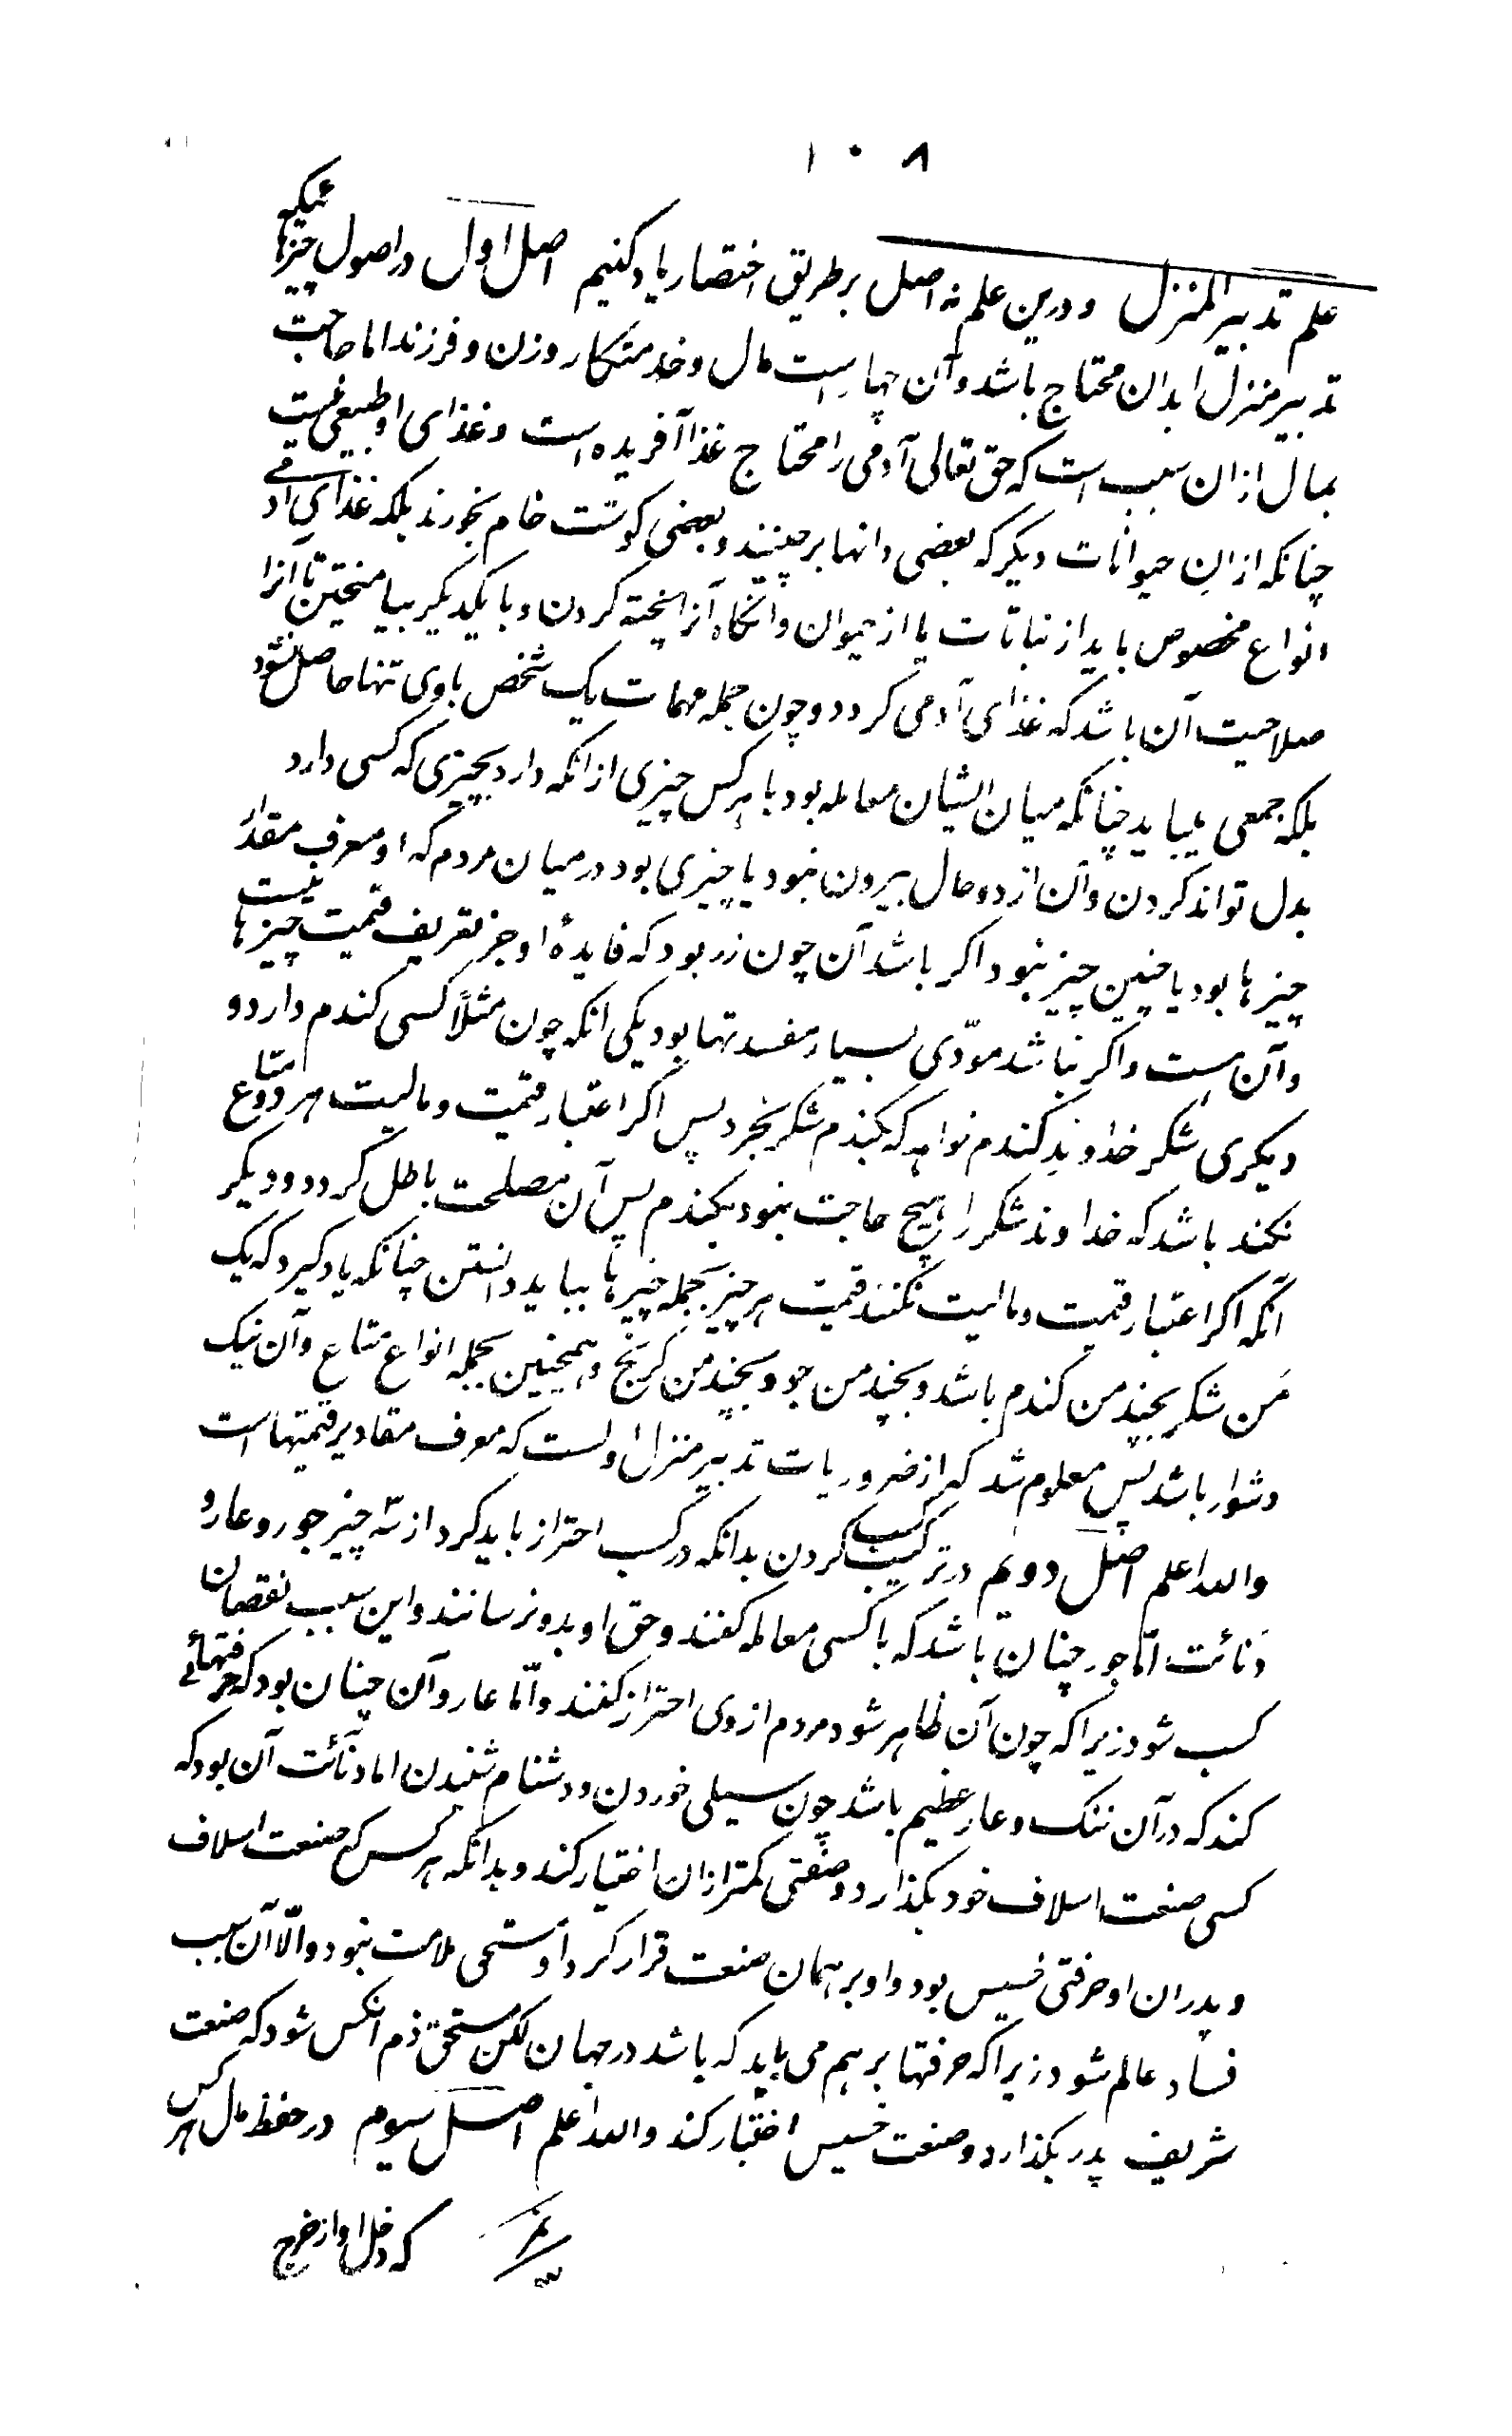 ۱۰۸
علم تدبیر المنزل و درین علم نه اصل بر طریق اختصار یاد کنیم اصل اول در اصول چیزها ئیکه
تدبیر منزل ابدان محتاج باشد و آن چهار است مال و خدمتکار و زن و فرزند اما حاجت
بمال ازان سبب است که حق تعالی آدمی را محتاج غذا آفریده است و غذای او طبیعی نیست
چنانکه ازان حیوانات دیگر که بعضی دانها برچینند و بعضی کوشت خام بخورند بلکه غذای آدمی
انواع مخصوص باید از نباتات یا از حیوان وانگاه آنرا پخته کردن و با یکدیگر بیامیختین تا آنرا
صلاحیت آن باشد که غذای آدمی کردد و چون جمله مهمات یک شخص باوی تنها حاصل نشود
بلکه جمعی بیاید چنانکه میان ایشان معامله بود با هر کس چیزی ازانکه دارد بچیزی که کسی دارد
بدل تواند کردن و آن از دو حال بیرون نبود یا چیزی بود در میان مردم که او معرف مقدار
چیزها بود یا چنین چیز نبود اکر باشد آن چون زر بود که فایدهٔ او جز تعریف قیمت چیزها نیست
و آن هست و اکر نباشد مودّی بسیار مفسدتها بود یکی انکه چون مثلاً کسی کندم دارد و
دیکری شکر خداوند کندم خواهد که بکندم شکر بخرد پس اکر اعتبار قیمت و مالیت هر دو متاع
نکند باشد که خداوند شکر را هیچ حاجت نبود بکندم پس آن مصلحت باطل کردد و دیکر
آنکه اکر اعتبار قیمت و مالیت نکنند قیمت هر چیز بجمله چیزها بباید دانستن چنانکه یاد کیرد که یک
من شکر بچند من کندم باشد و بچند من جو و بچند من کرنج و همچنین بجمله انواع متاع و آن نیک
دشوار باشد پس معلوم شد که از ضروریات تدبیر منزل اولست که معرف مقادیر قیمتها است
والله اعلم اصل دویم در ترکیب کسب کردن بدانکه در کسب احتراز باید کرد از سه چیز جور و عار و
دنائت امّا جور چنان باشد که با کسی معامله کنند و حق او بدو نرسانند و این سبب نقصان
کسب شود زیرا که چون آن ظاهر شود مردم از وی احتراز کنند و امّا عار و آن چنان بود که حرفتهائی
کند که در آن ننک و عار عظیم باشد چون سیلی خوردن و دشنام شنیدن اما دنائت آن بود که
کسی صنعت اسلاف خود بکذارد و صنعتی کمتر ازان اختیار کند و بدانکه هر کس که صنعت اسلاف
و پدران او حرفتی خسیس بود و او بر همان صنعت قرار کرد او مستحق ملامت نبود و الّا آن سبب
فساد عالم شود زیرا که حرفتها بر هم می باید که باشد در جهان لکن مستحق ذم انکس شود که صنعت
شریف پدر بکذارد و صنعت خسیس اختیار کند والله اعلم اصل سیوم در حفظ مال هر کس
که دخل او از خرج